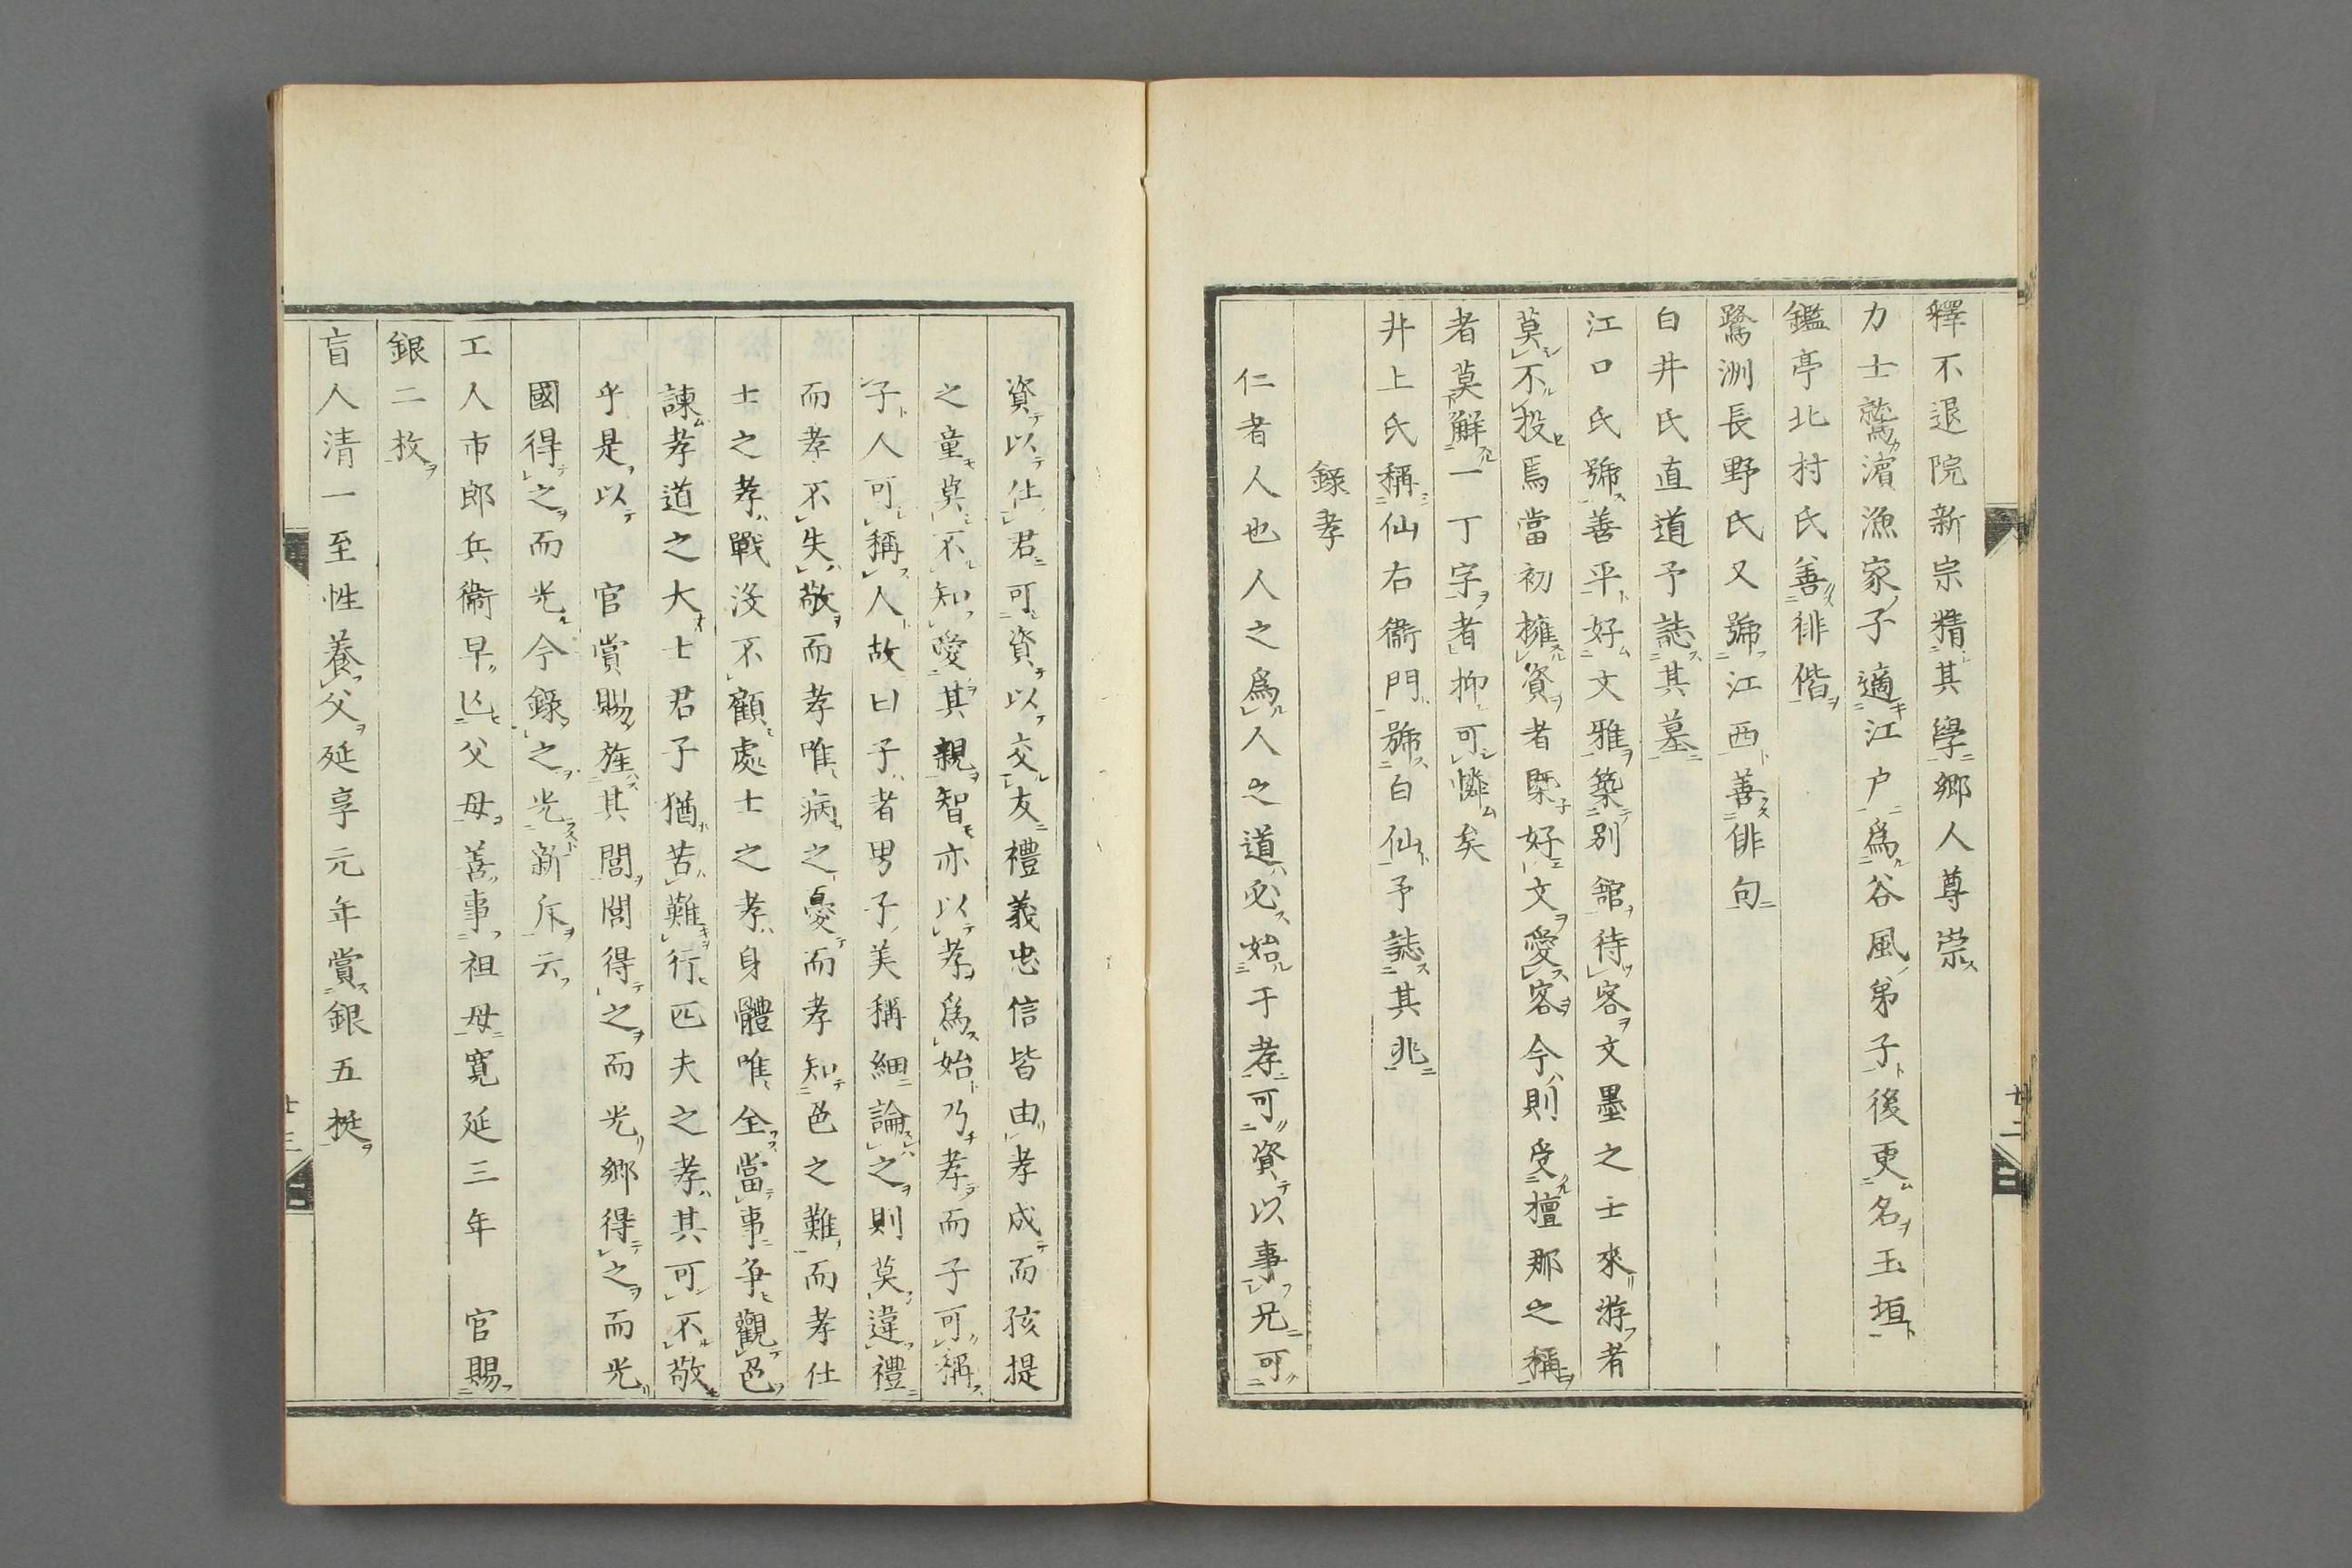 釋不退院新宗精其學鄉人尊崇
力士鵞濵漁家子適江户爲谷風弟子後更名玉垣
鑑亭北村氏善徘偕
鷺洲長野氏又號江西善俳句
白井氏直道予誌其墓
江口氏號善平好文雅築别舘待客文墨之士來游者
莫不投焉當初擁資者槩好文愛客今則受檀那之稱
者莫觧一丁字者抑可憐矣
井上氏稱仙右衞門號白仙予誌其兆
錄孝
仁者人也人之爲人之道必始于孝可資以事兄可
廿二
資以仕君可資以交友禮義忠信皆由孝成而孩提
之童莫不知愛其親智亦以孝爲始乃孝而子可稱
子人可稱人故曰子者男子美稱細論之則莫違禮
而孝不失敬而孝唯病之憂而孝知色之難而孝仕
士之孝戰没不顧處士之孝身體唯全當事争觀色
諫孝道之大士君子猶苦難行匹夫之孝其可不敬
乎是以　官賞賜旌其閭閭得之而光鄉得之而光
國得之而光今錄之光新斥云
工人市郎兵衞早亾父母善事祖母寛延三年　官賜
銀二枚
盲人清一至性養父延享元年賞銀五挺